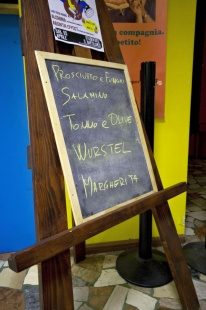 compagnia.
petito!
PROSCIUTTO E FUNGHI
SALAMINO
TONNO E OLIVE
WURSTEL
MARGHERITA